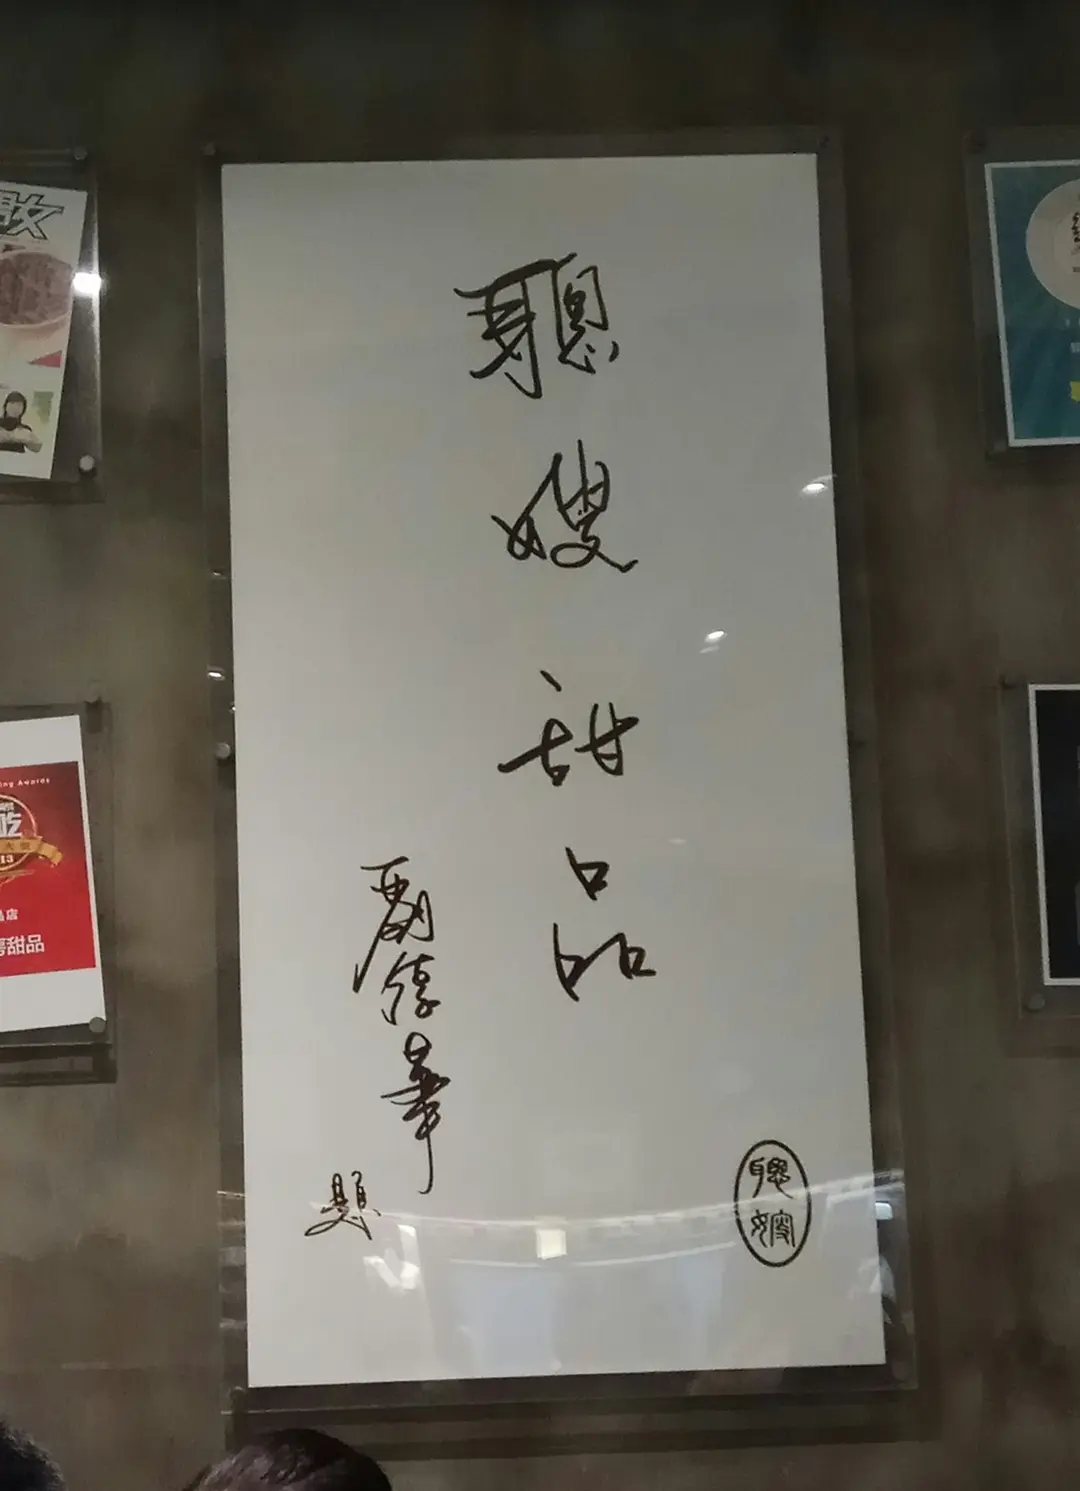 聰嫂甜品
劉德華
題
聰嫂
女
ing Awards
吃
13
店
甜品